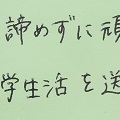 諦めずに頑
学生活を送